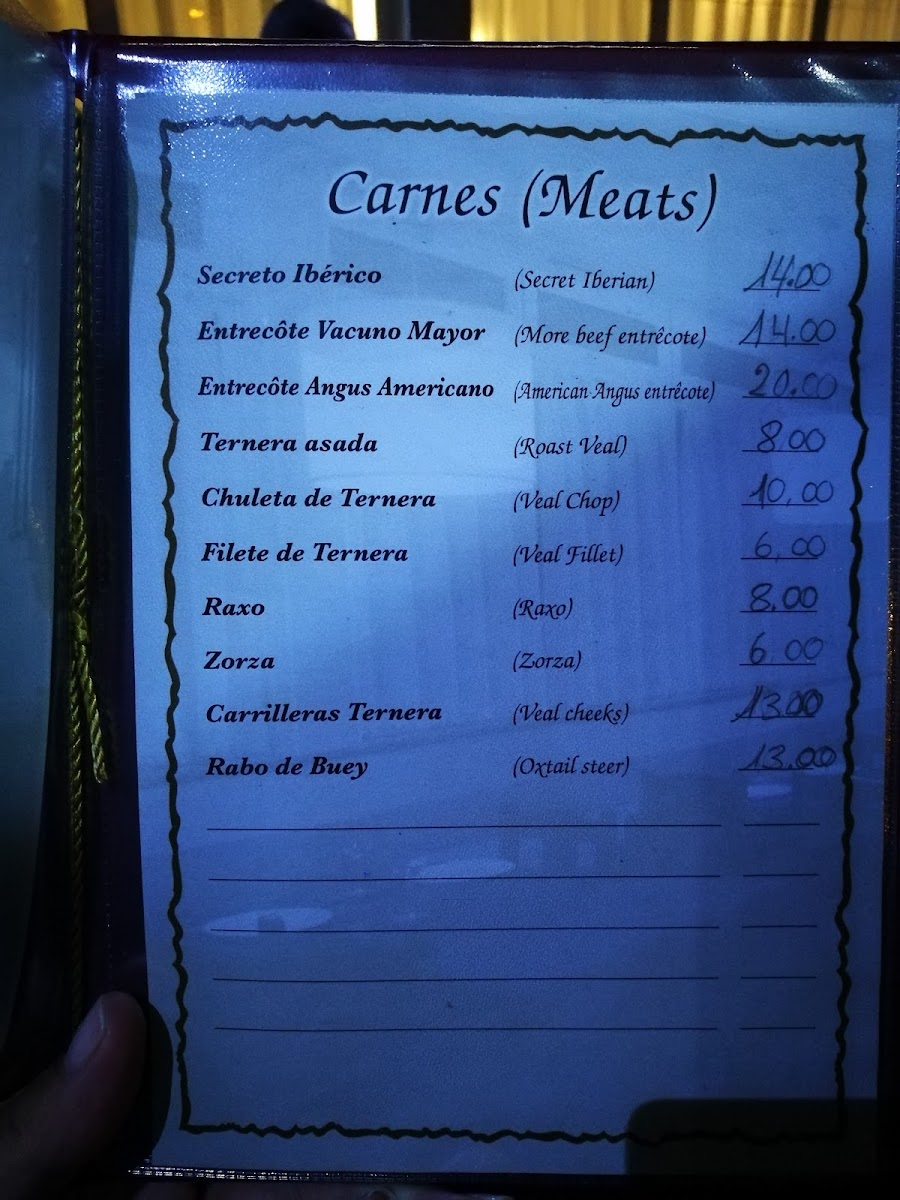 Carnes (Meats)
Secreto Ibérico (Secret Iberian) 14.00
Entrecôte Vacuno Mayor (More beef entrêcote) 14.00
Entrecôte Angus Americano (American Angus entrêcote) 20.00
Ternera asada (Roast Veal) 8.00
Chuleta de Ternera (Veal Chop) 10,00
Filete de Ternera (Veal Fillet) 6,00
Raxo (Raxo) 8.00
Zorza (Zorza) 6.00
Carrilleras Ternera (Veal cheeks) 13.00
Rabo de Buey (Oxtail steer) 13.00